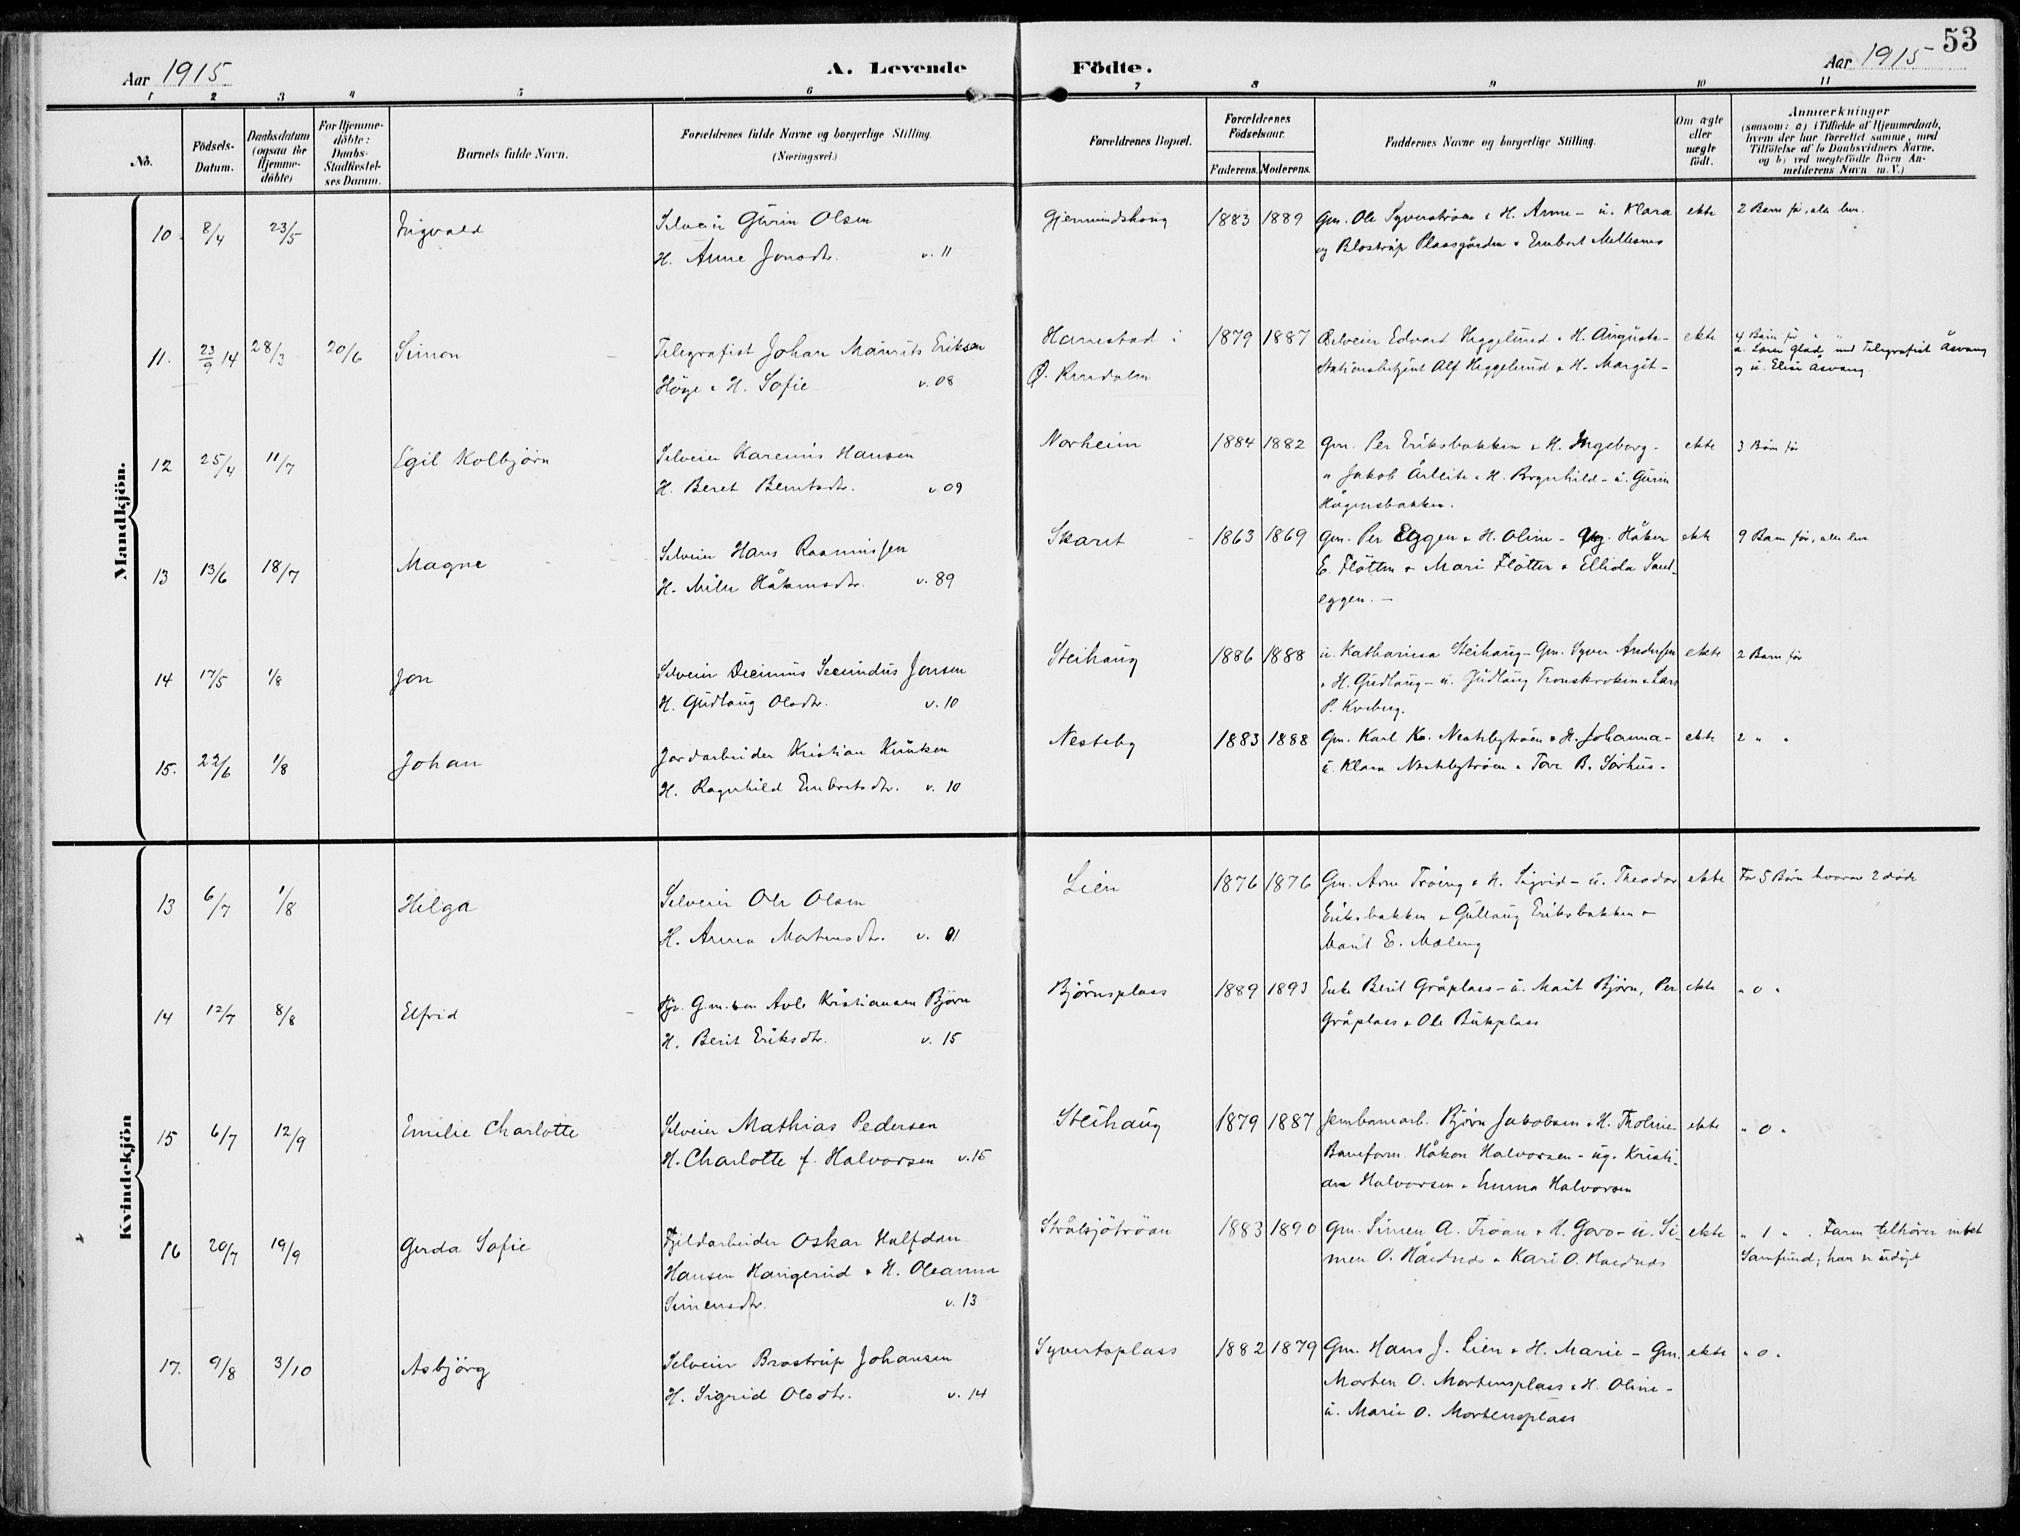 53
Aar 1915
A. Levende
Födte.
Aar 1915
1 2 3 4 5 6 7 8 9 10 11
No.
Födsels-
Datum.
Daabsdatum
(ogsaa for
Hjemme-
döbte)
For Hjemme-
döbte:
Daabs-
Stadfæstel-
ses Datum.
Barnets fulde Navn.
Forældrenes fulde Navne og borgerlige Stilling.
(Næringsvei.)
Forældrenes Bopæl.
Forældrenes
Födselsaar.
Faderens. Moderens.
Faddernes Navne og borgerlige Stilling.
Om ægte
eller
uægte
födt.
Anmærkninger
(saasom: a) i Tilfælde af Hjemmedaab,
hvem der har forrettet samme, med
Tilföielse af to Daabsvidners Navne.
og b) ved uægtefödte Börn An-
melderens Navn m. V.)
Mandkjön.
10. 8/4 23/5 Ingvald
Selveier Gurin Olsen
H. Anne Jonsdtr. v. 11
Gjermundshaug 1883 1889
Gm. Ole Syverströen & H. Anne - u. Klara
og Blostrup Plassgården & Embret Mellesmo
ekte
2 Barn før, alle lever.
11. 23/9 14 28/3 20/6 Simon
Telegrafist Johan Mauritz Eriksen
Höye & H. Sofie v. 08
Harrestad i
Ø. Rendalen
1879 1887
Selveier Edvard Heggelund & H. Augusta-
Stationsbetjent Alf Heggelund & H. Margit-
ekte
4 Barn før " "
a. Lærer Glad med Telegrafist Åsvang
og u. Elise Åsvang
12 25/4 11/7 Egil Kolbjørn
Selveier Karenus Hansen
H. Beret Berntsdtr. v. 09
Norheim 1884 1882
Gm. Per Eriksbakken & H. Ingeborg-
" Jakob Urleite & H. Borgnhild - u. Gurin
Hågensbakken.
ekte
3 Børn før
13 13/6 18/7 Magne
Selveier Hans Rasmussen
H. Mille Håkensdtr. v. 89
Skaret 1863 1869
Gm. Per Eggen & H. Oline - Ung. Håken
E. Fløtten & Mari Fløtten & Ellida Sand-
eggen. -
ekte
9 Barn før, alle lever
14 17/5 1/8 Jon
Selveier Decimus Secundus Jonsen
H. Gudlaug Olsdtr. v. 10
Steihaug 1886 1888
u. Katharina Steihaug - Gm. Syver Andersen
& H. Gudlaug - u. Gudlaug Tronskroken & Lars
P. Kveberg.
ekte
2 Barn før
15. 22/6 1/8 Johan
Jordarbeider Kristian Knutsen
H. Ragnhild Embretsdtr. v. 10
Nesteby 1883 1888
Gm. Karl K. Nestebytrøen & H. Johanna-
u. Klara Nestebytrøen & Tore B. Sørhus.
ekte
2 " "
Kvindekjön
13 6/7 1/8 Helga
Selveier Ole Olsen
H. Anna Mortensdtr. v. 01
Lien 1876 1876
Gm. Arne Trøeng & H. Sigrid - u. Theodor
Eriksbakken & Gullaug Eriksbakken &
Marit E. Mæleng
ekte
Før 5 Børn hvorav 2 døde
14 12/7 8/8 Elfrid
Gm.søn Avle Kristiansen Bjørn
H. Berit Eriksdtr. v. 15
Bjørnsplass 1889 1893
Enke Berit Gråplass - u. Marit Bjørn, Per
Gråplass & Ole Bukplass
ekte
" 0 "
15 6/7 12/9 Emilie Charlotte
Selveier Mathias Pedersen
H. Charlotte f. Halvorsen v. 15
Steihaug 1879 1887
Jernbanearb. Bjørn Jakobsen & H. Tholine-
Baneform. Håkon Halvorsen - ug. Kristi-
an Halvorsen & Emma Halvorsen
ekte
" 0 "
16 20/7 19/9 Gerda Sofie
Fjeldarbeider Oskar Halfdan
Hansen Haugerud & H. Oleanna
Simensdtr. v. 13
Strålsjøtrøan 1883 1890
Gm. Simen A. Trøan & H. Goro - u. Si-
men O. Hårdnes & Kari O. Hårdnes
ekte
" 1 " . Farm tilhører intet
Samfund; han er udøpt
17. 9/8 3/10 Asbjörg
Selveier Brostrup Johansen
H. Sigrid Olsdtr. v. 14
Syvertsplass 1882 1879
Gm. Hans J. Lien & H. Marie - Gm.
Morten O. Mortensplass & H. Oline -
u. Marie O. Mortensplass
ekte
" 0 "